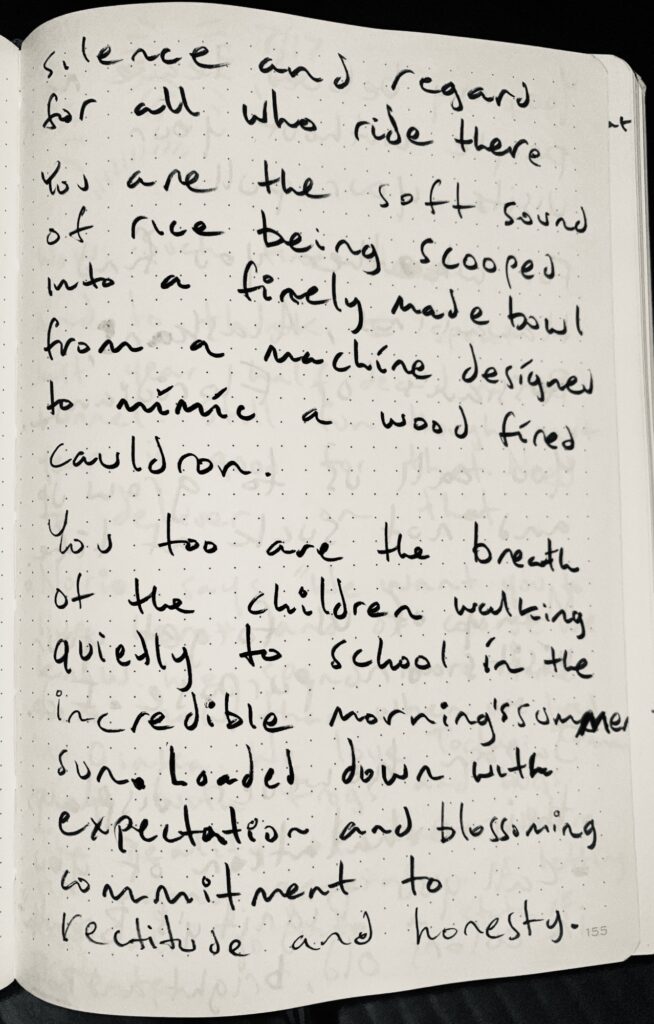 silence and regard
for all who ride there
You are the soft sound
of rice being scooped
into a finely made bowl
from a machine designed
to mimic a wood fired
cauldron.
You too are the breath
of the children walking
quietly to school in the
incredible morning's summer
sun. Loaded down with
expectation and blossoming
commitment to
rectitude and honesty.
155